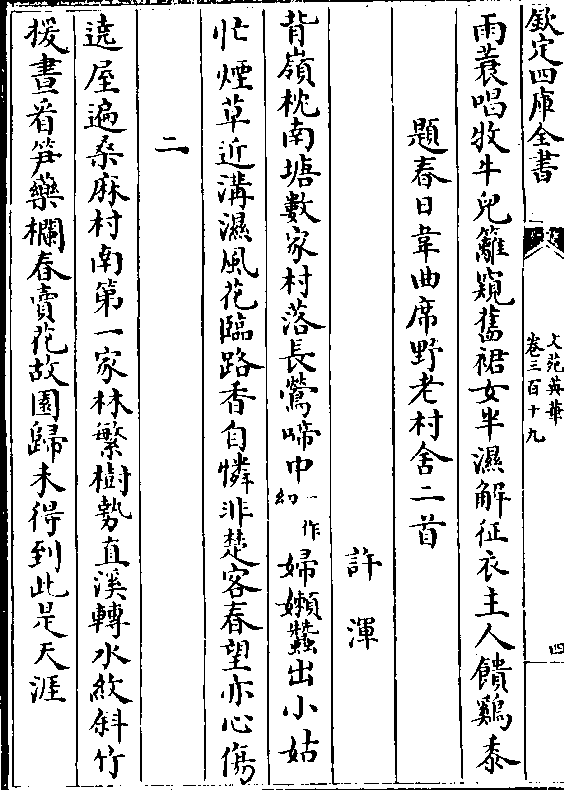 欽定四庫全書
文苑英華
卷三百十九
四
雨蓑唱牧牛兒籬窺舊裙女半濕解征衣主人饋鷄黍
題春日韋曲席野老村舍二首
許渾
背嶺枕南塘數家村落長鶯啼中一作幼婦嬾蠶出小姑
忙煙草近溝濕風花臨路香自憐非楚客春望亦心傷
二
遶屋遍桑麻村南第一家林繁樹勢直溪轉水紋斜竹
楥晝看笋藥欄春賣花故園歸未得到此是天涯